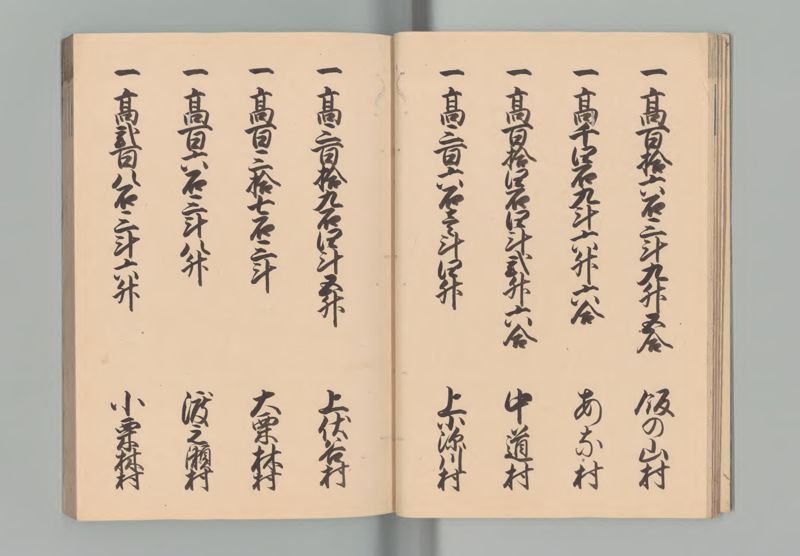 一 高百拾六石三斗九升五合 飯の山村
一 高千四石九斗六升六合 あな村
一 高百拾四石四斗弐升六合 中道村
一 高三百六石壱斗四升 上小深川村
一 高三百拾九石四斗五升 上伏谷村
一 高百三拾七石三斗 大栗林村
一 高百六石三斗八升 渡之瀬村
一 高弐百八石三斗六升 小栗林村